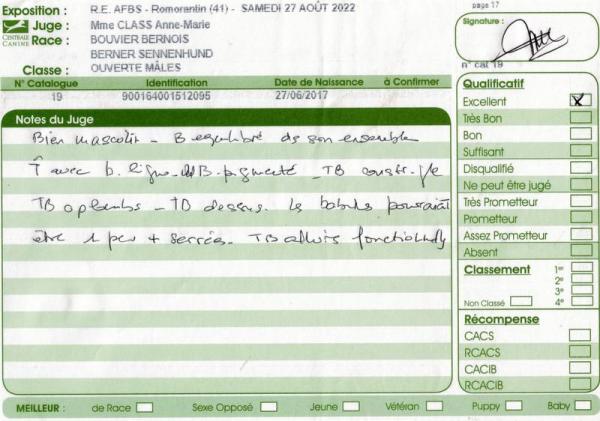 Exposition : R.E. AFBS - Romorantin (41) - SAMEDI 27 AOÛT 2022
page 17
Signature :
CENTRALE CANINE
Juge : Mme CLASS Anne-Marie
Race : BOUVIER BERNOIS
BERNER SENNENHUND
Classe : OUVERTE MÂLES
n° cat 19
N° Catalogue Identification Date de Naissance à Confirmer
19 900164001512095 27/06/2017
Notes du Juge
Bien masculin - B equilibré de son ensemble
T avec b. B. pigmenté - TB
TB aplombs - TB dessus. les pourrait
être 1 peu + serrées - TB allures
Qualificatif
Excellent X
Très Bon
Bon
Suffisant
Disqualifié
Ne peut être jugé
Très Prometteur
Prometteur
Assez Prometteur
Absent
Classement 1er
2e
3e
Non Classé 4e
Récompense
CACS
RCACS
CACIB
RCACIB
MEILLEUR : de Race Sexe Opposé Jeune Vétéran Puppy Baby